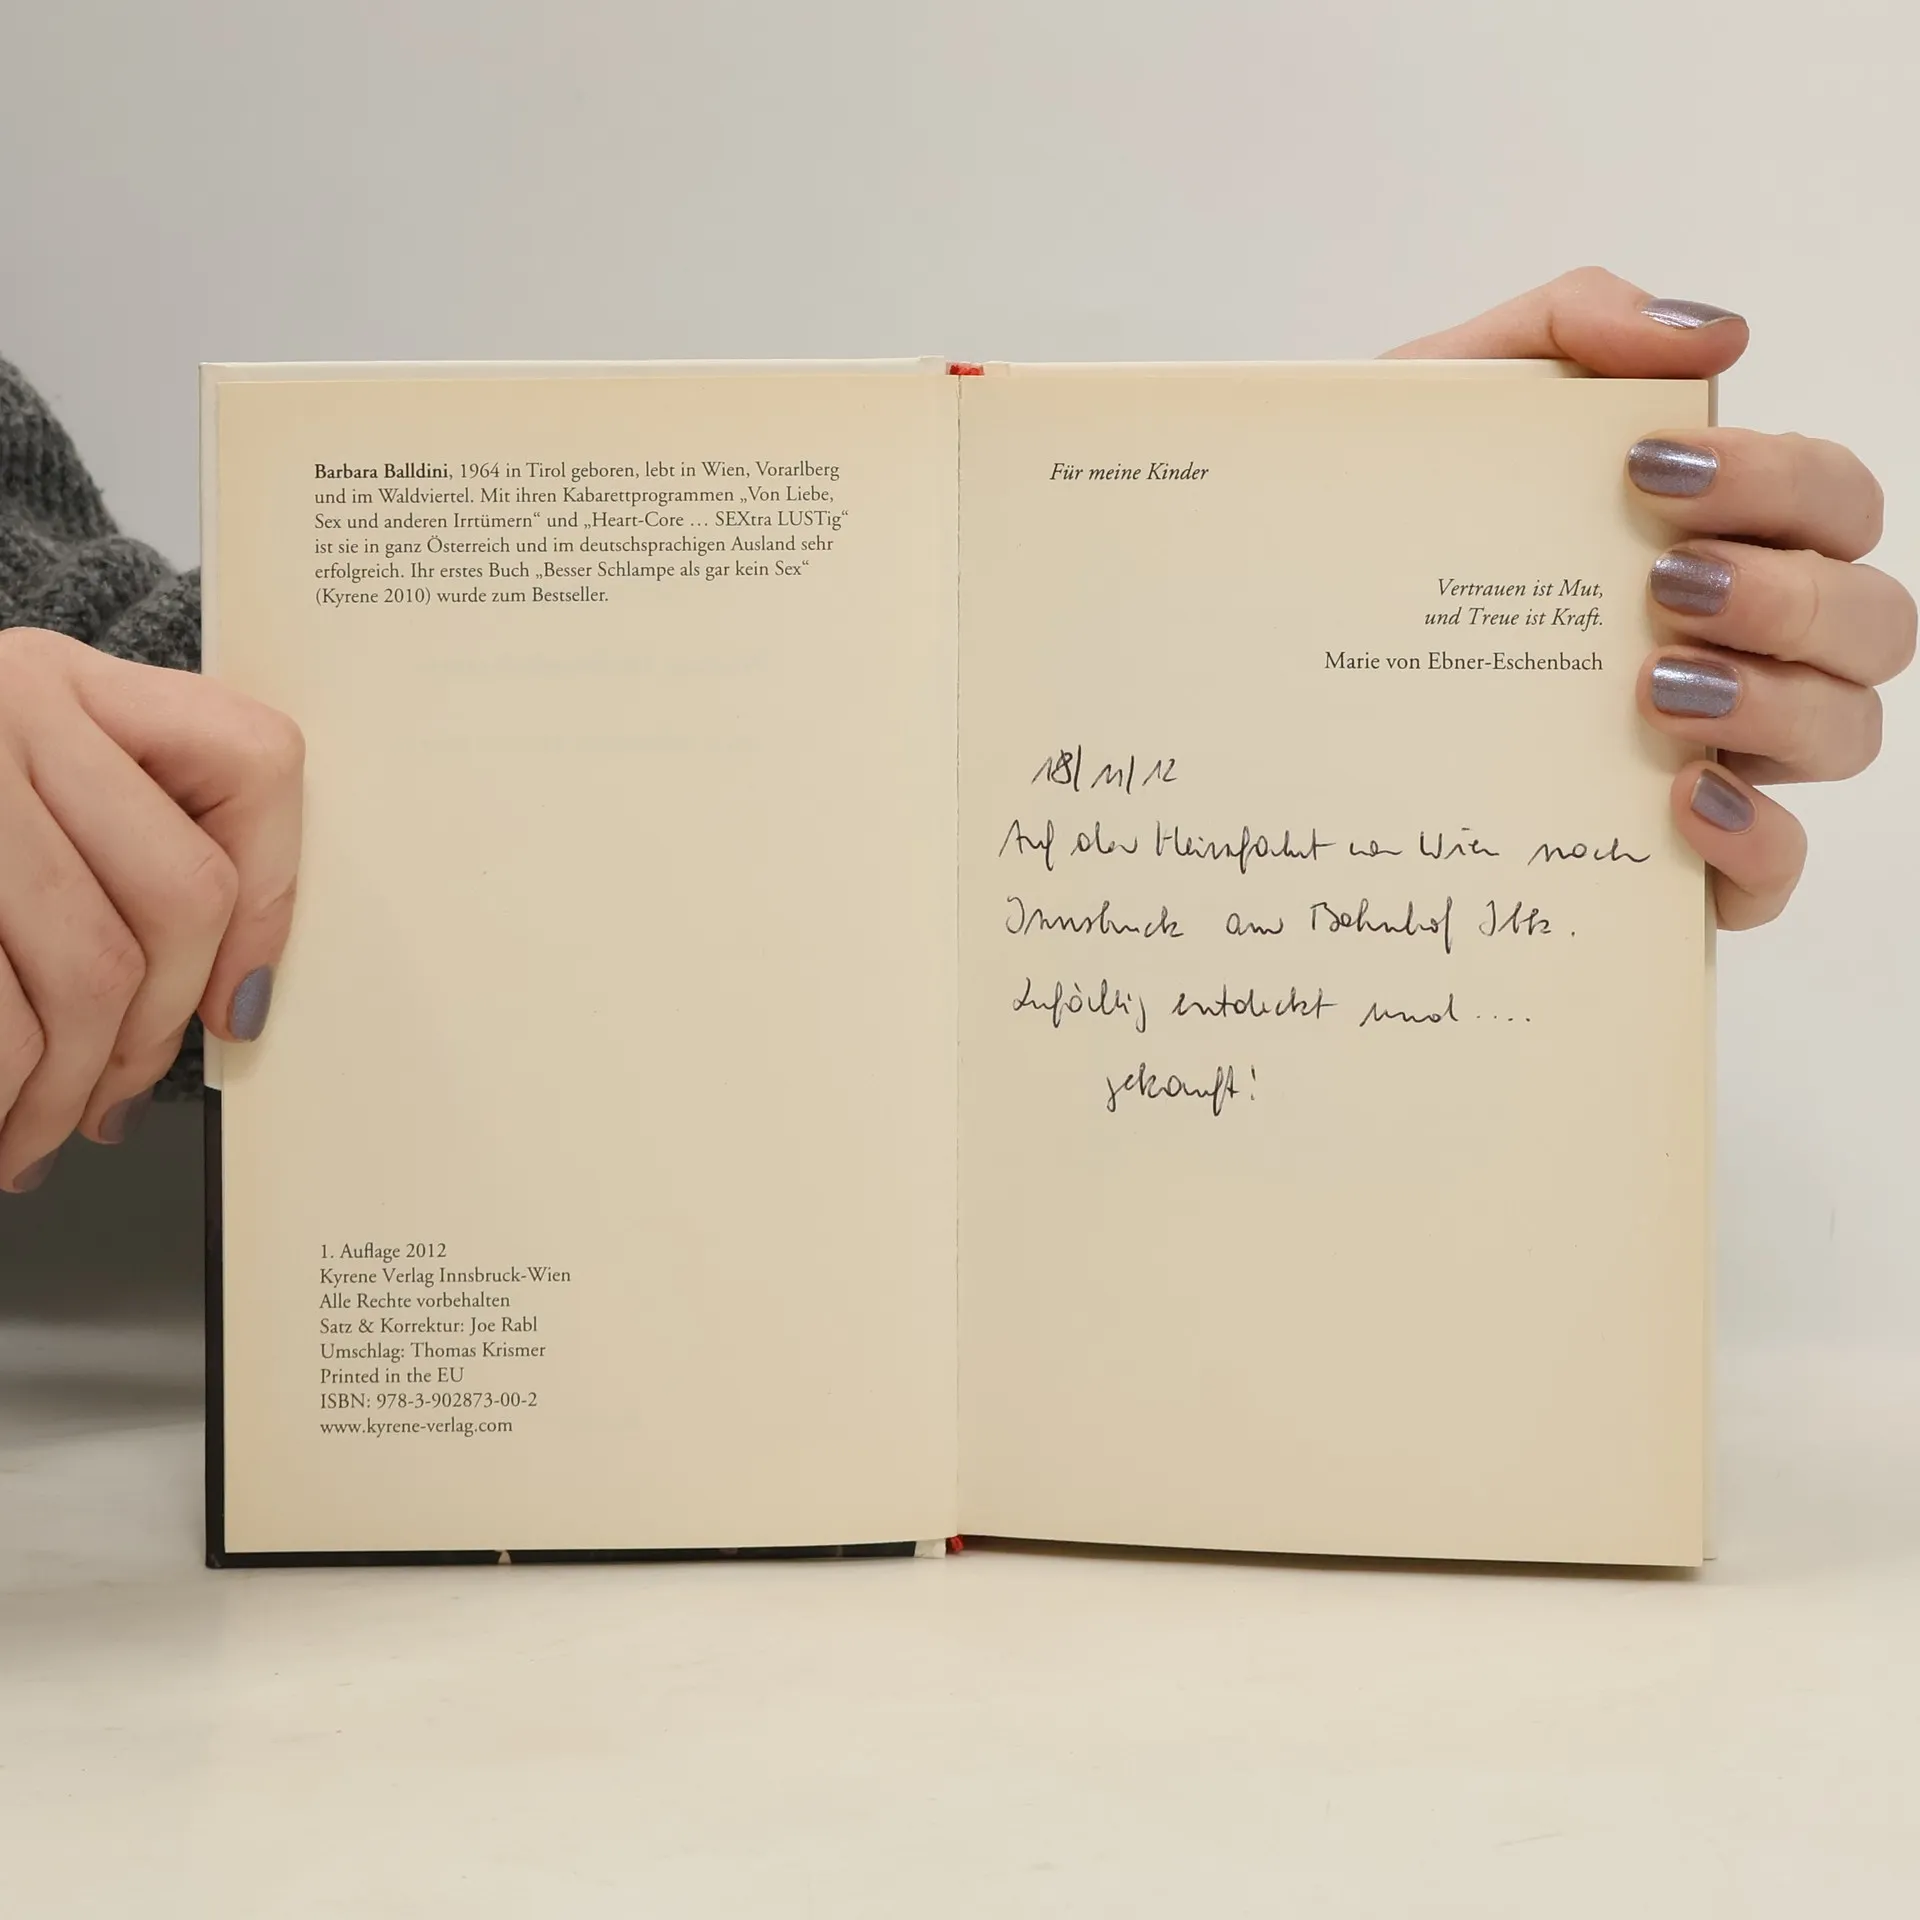 Barbara Balldini, 1964 in Tirol geboren, lebt in Wien, Vorarlberg
und im Waldviertel. Mit ihren Kabarettprogrammen „Von Liebe,
Sex und anderen Irrtümern“ und „Heart-Core … SEXtra LUSTig“
ist sie in ganz Österreich und im deutschsprachigen Ausland sehr
erfolgreich. Ihr erstes Buch „Besser Schlampe als gar kein Sex“
(Kyrene 2010) wurde zum Bestseller.
1. Auflage 2012
Kyrene Verlag Innsbruck-Wien
Alle Rechte vorbehalten
Satz & Korrektur: Joe Rabl
Umschlag: Thomas Krismer
Printed in the EU
ISBN: 978-3-902873-00-2
www.kyrene-verlag.com
Für meine Kinder
Vertrauen ist Mut,
und Treue ist Kraft.
Marie von Ebner-Eschenbach
18/11/12
Auf der Heimfahrt von Wien nach
Innsbruck am Bahnhof Ibk.
Zufällig entdeckt und ....
gekauft!